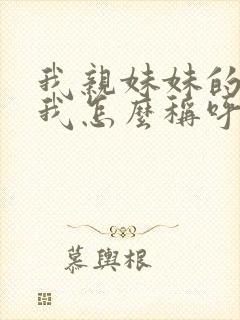 我親妹妹的
我怎麼稱呼
慕與根